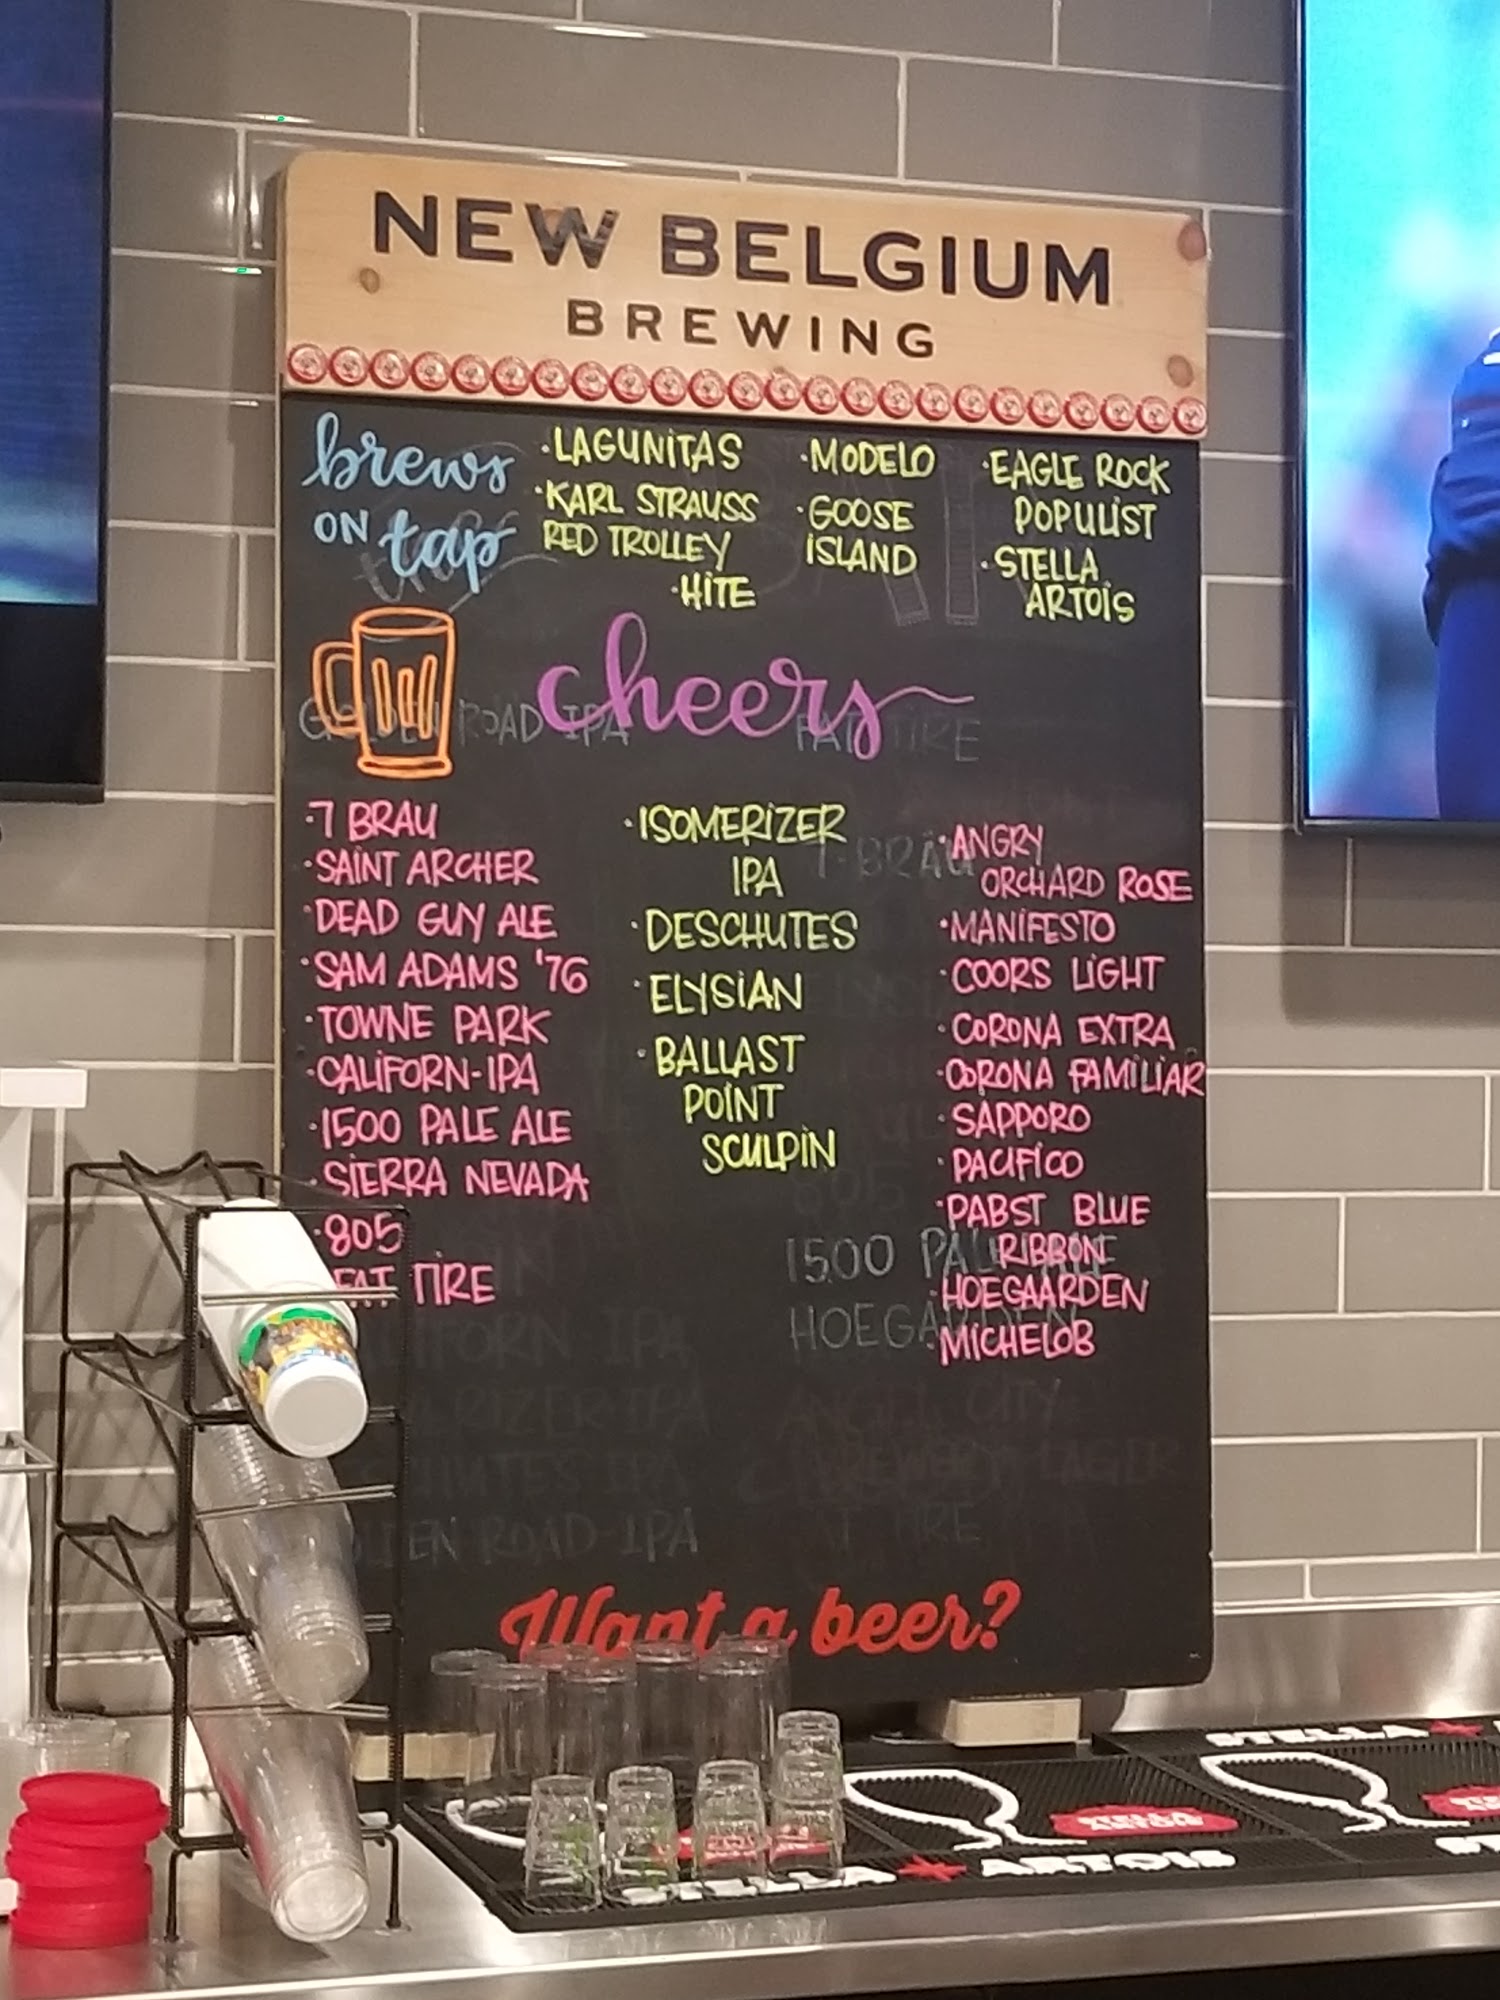 NEW BELGIUM
BREWING
brews
ON tap
·LAGUNITAS
·KARL STRAUSS
RED TROLLEY
·HITE
·MODELO
·GOOSE
ISLAND
·EAGLE ROCK
POPULIST
·STELLA
ARTOIS
cheers
GOLDEN ROAD IPA
FAT TIRE
·7 BRAU
·SAINT ARCHER
·DEAD GUY ALE
·SAM ADAMS '76
·TOWNE PARK
·CALIFORN-IPA
·1500 PALE ALE
·SIERRA NEVADA
·805
FAT TIRE
·ISOMERIZER
IPA
·DESCHUTES
·ELYSIAN
·BALLAST
POINT
SCULPIN
7-BRÄU
·ANGRY
ORCHARD ROSE
·MANIFESTO
·COORS LIGHT
·CORONA EXTRA
·CORONA FAMILIAR
·SAPPORO
·PACIFICO
·PABST BLUE
RIBBON
·HOEGAARDEN
MICHELOB
805
1500 PALE ALE
HOEGAARDEN
CITY
BREWERY LAGER
TIRE
ROAD-IPA
Want a beer?
STELLA ARTOIS
STELLA